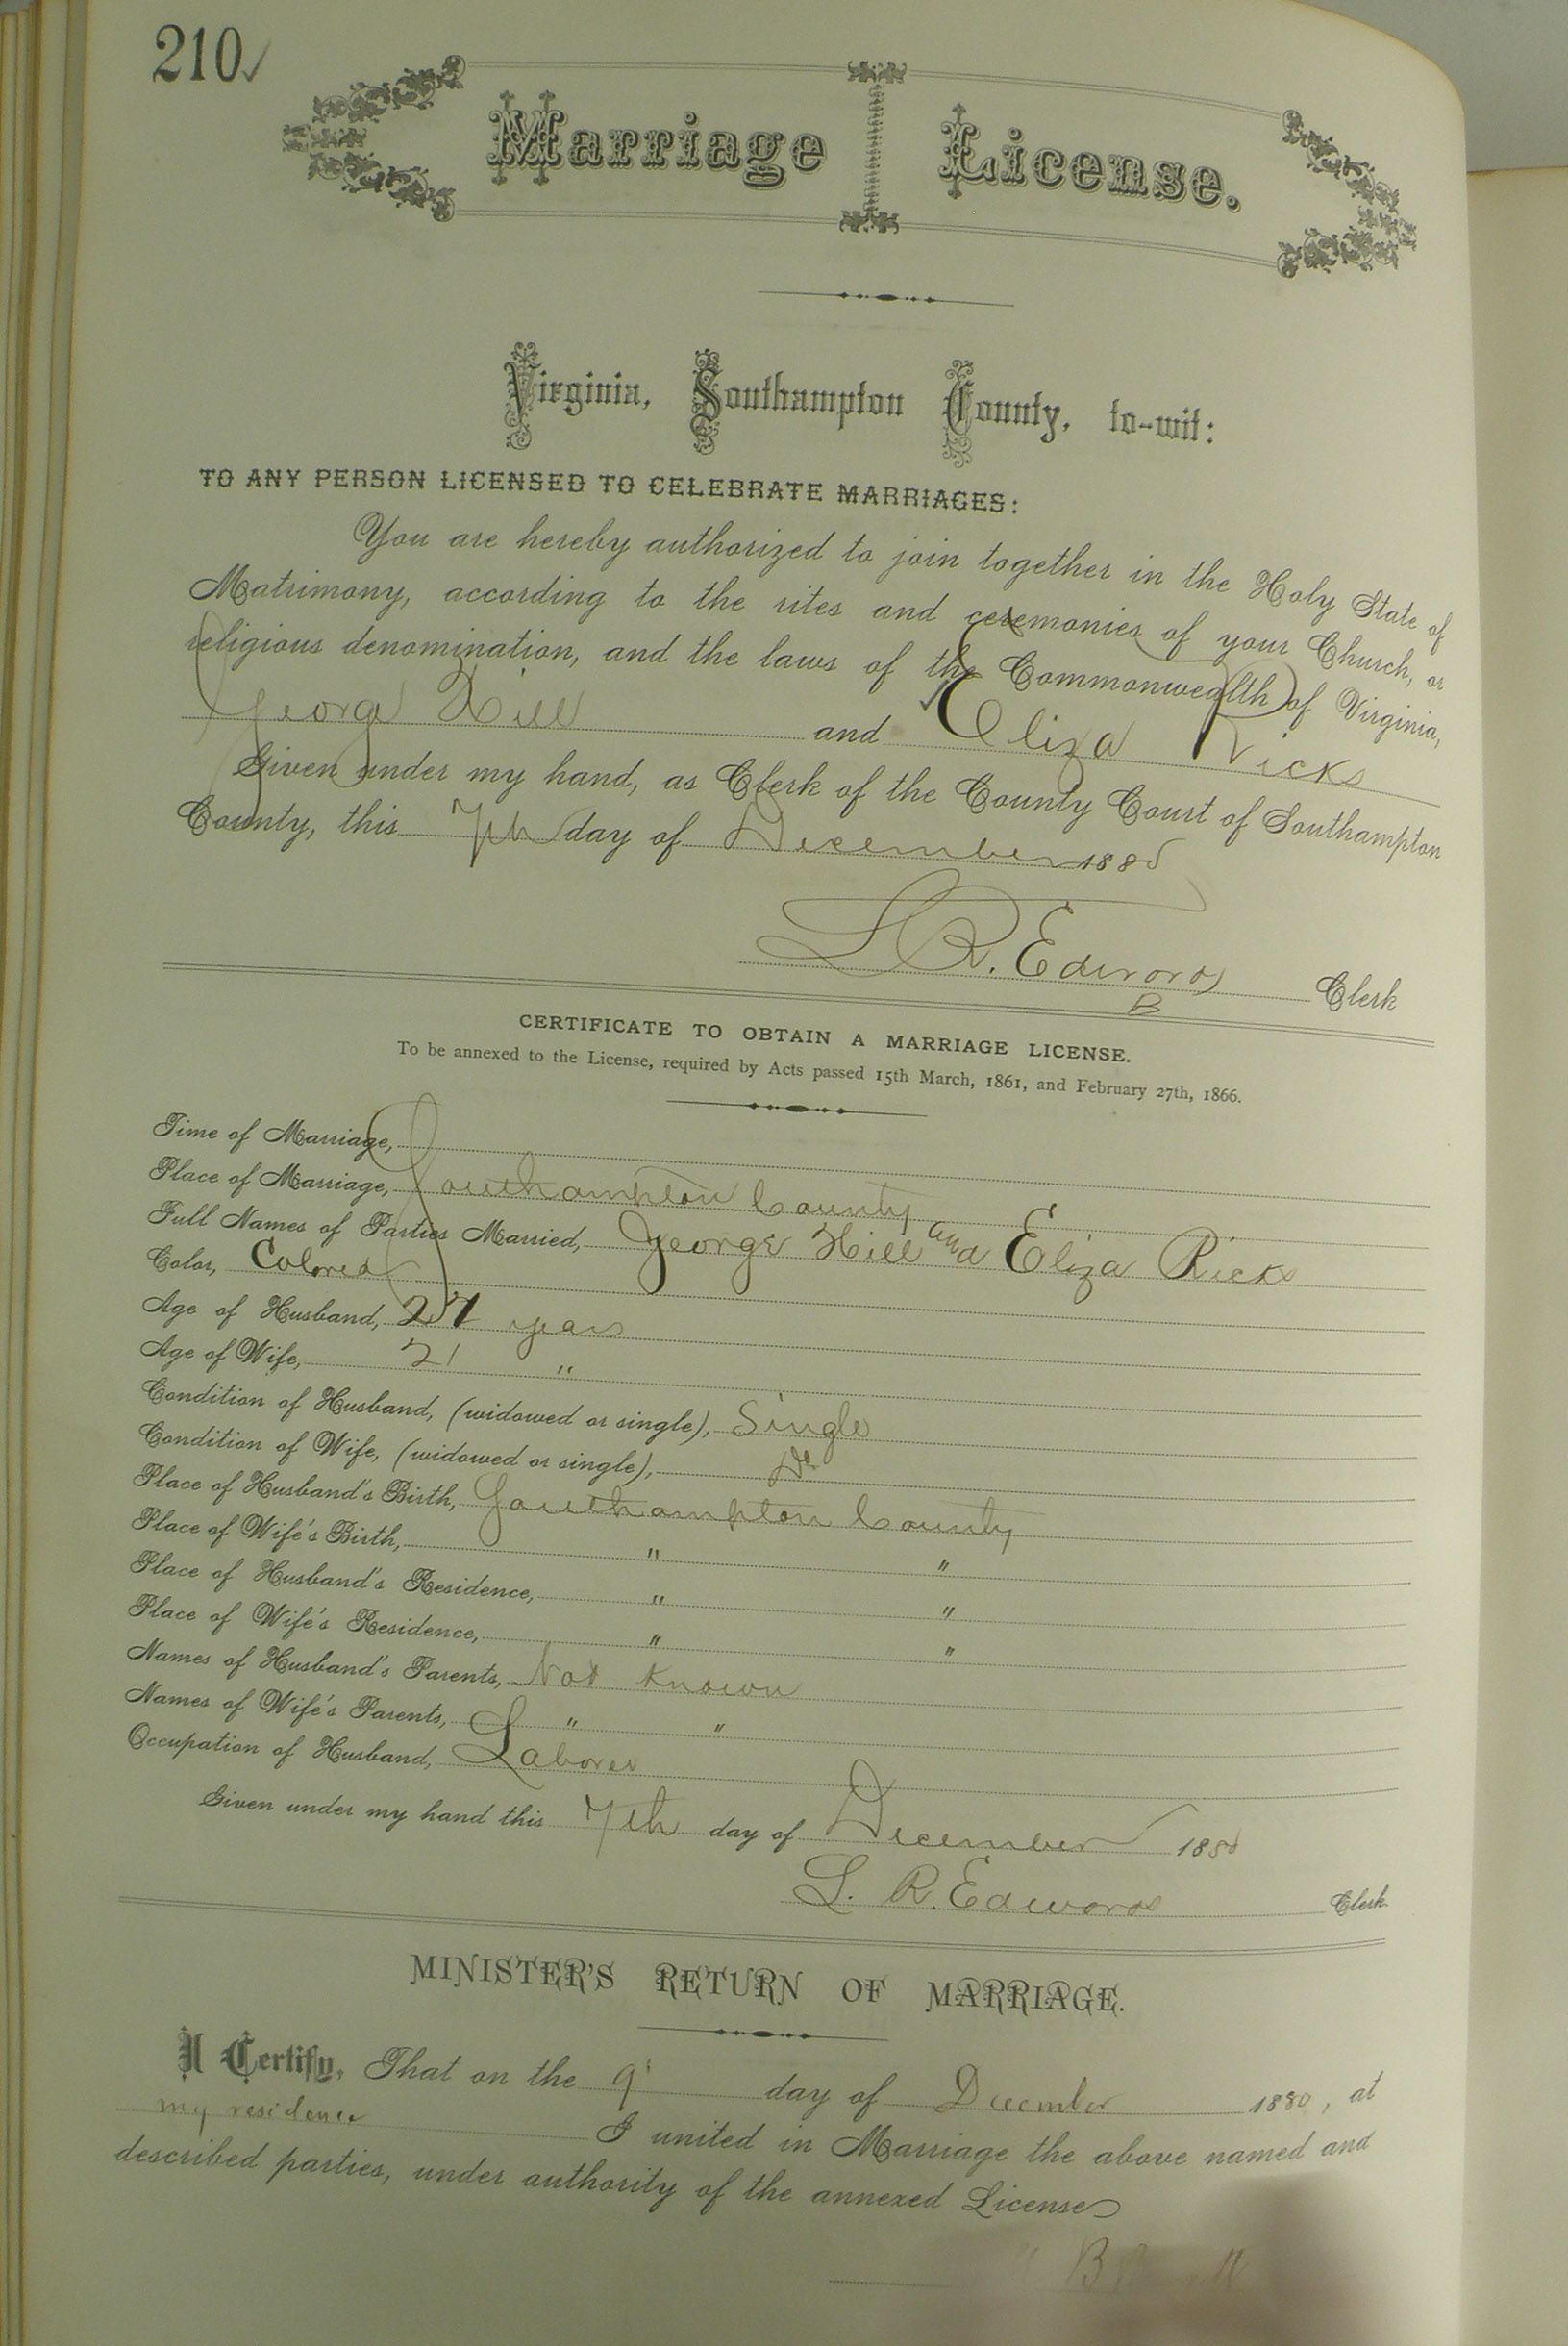 210
Marriage License.
Virginia, Southampton County, to-wit:
TO ANY PERSON LICENSED TO CELEBRATE MARRIAGES:
You are hereby authorized to join together in the Holy State of
Matrimony, according to the rites and ceremonies of your Church, or
religious denomination, and the laws of the Commonwealth of Virginia,
George Hill and Eliza Ricks
Given under my hand, as Clerk of the County Court of Southampton
County, this 7th day of December 1880
L R. Edwards Clerk
B
CERTIFICATE TO OBTAIN A MARRIAGE LICENSE.
To be annexed to the License, required by Acts passed 15th March, 1861, and February 27th, 1866.
Time of Marriage,
Place of Marriage, Southampton County
Full Names of Parties Married, George Hill and Eliza Ricks
Color, Colored
Age of Husband, 27 years
Age of Wife, 21 "
Condition of Husband, (widowed or single), Single
Condition of Wife, (widowed or single), Do
Place of Husband's Birth, Southampton County
Place of Wife's Birth, " "
Place of Husband's Residence, " "
Place of Wife's Residence, " "
Names of Husband's Parents, Not Known
Names of Wife's Parents, " "
Occupation of Husband, Laborer
Given under my hand this 7th day of December 1880
L. R. Edwards Clerk.
MINISTER'S RETURN OF MARRIAGE.
I Certify, That on the 9' day of December 1880, at
my residence I united in Marriage the above named and
described parties, under authority of the annexed License
B